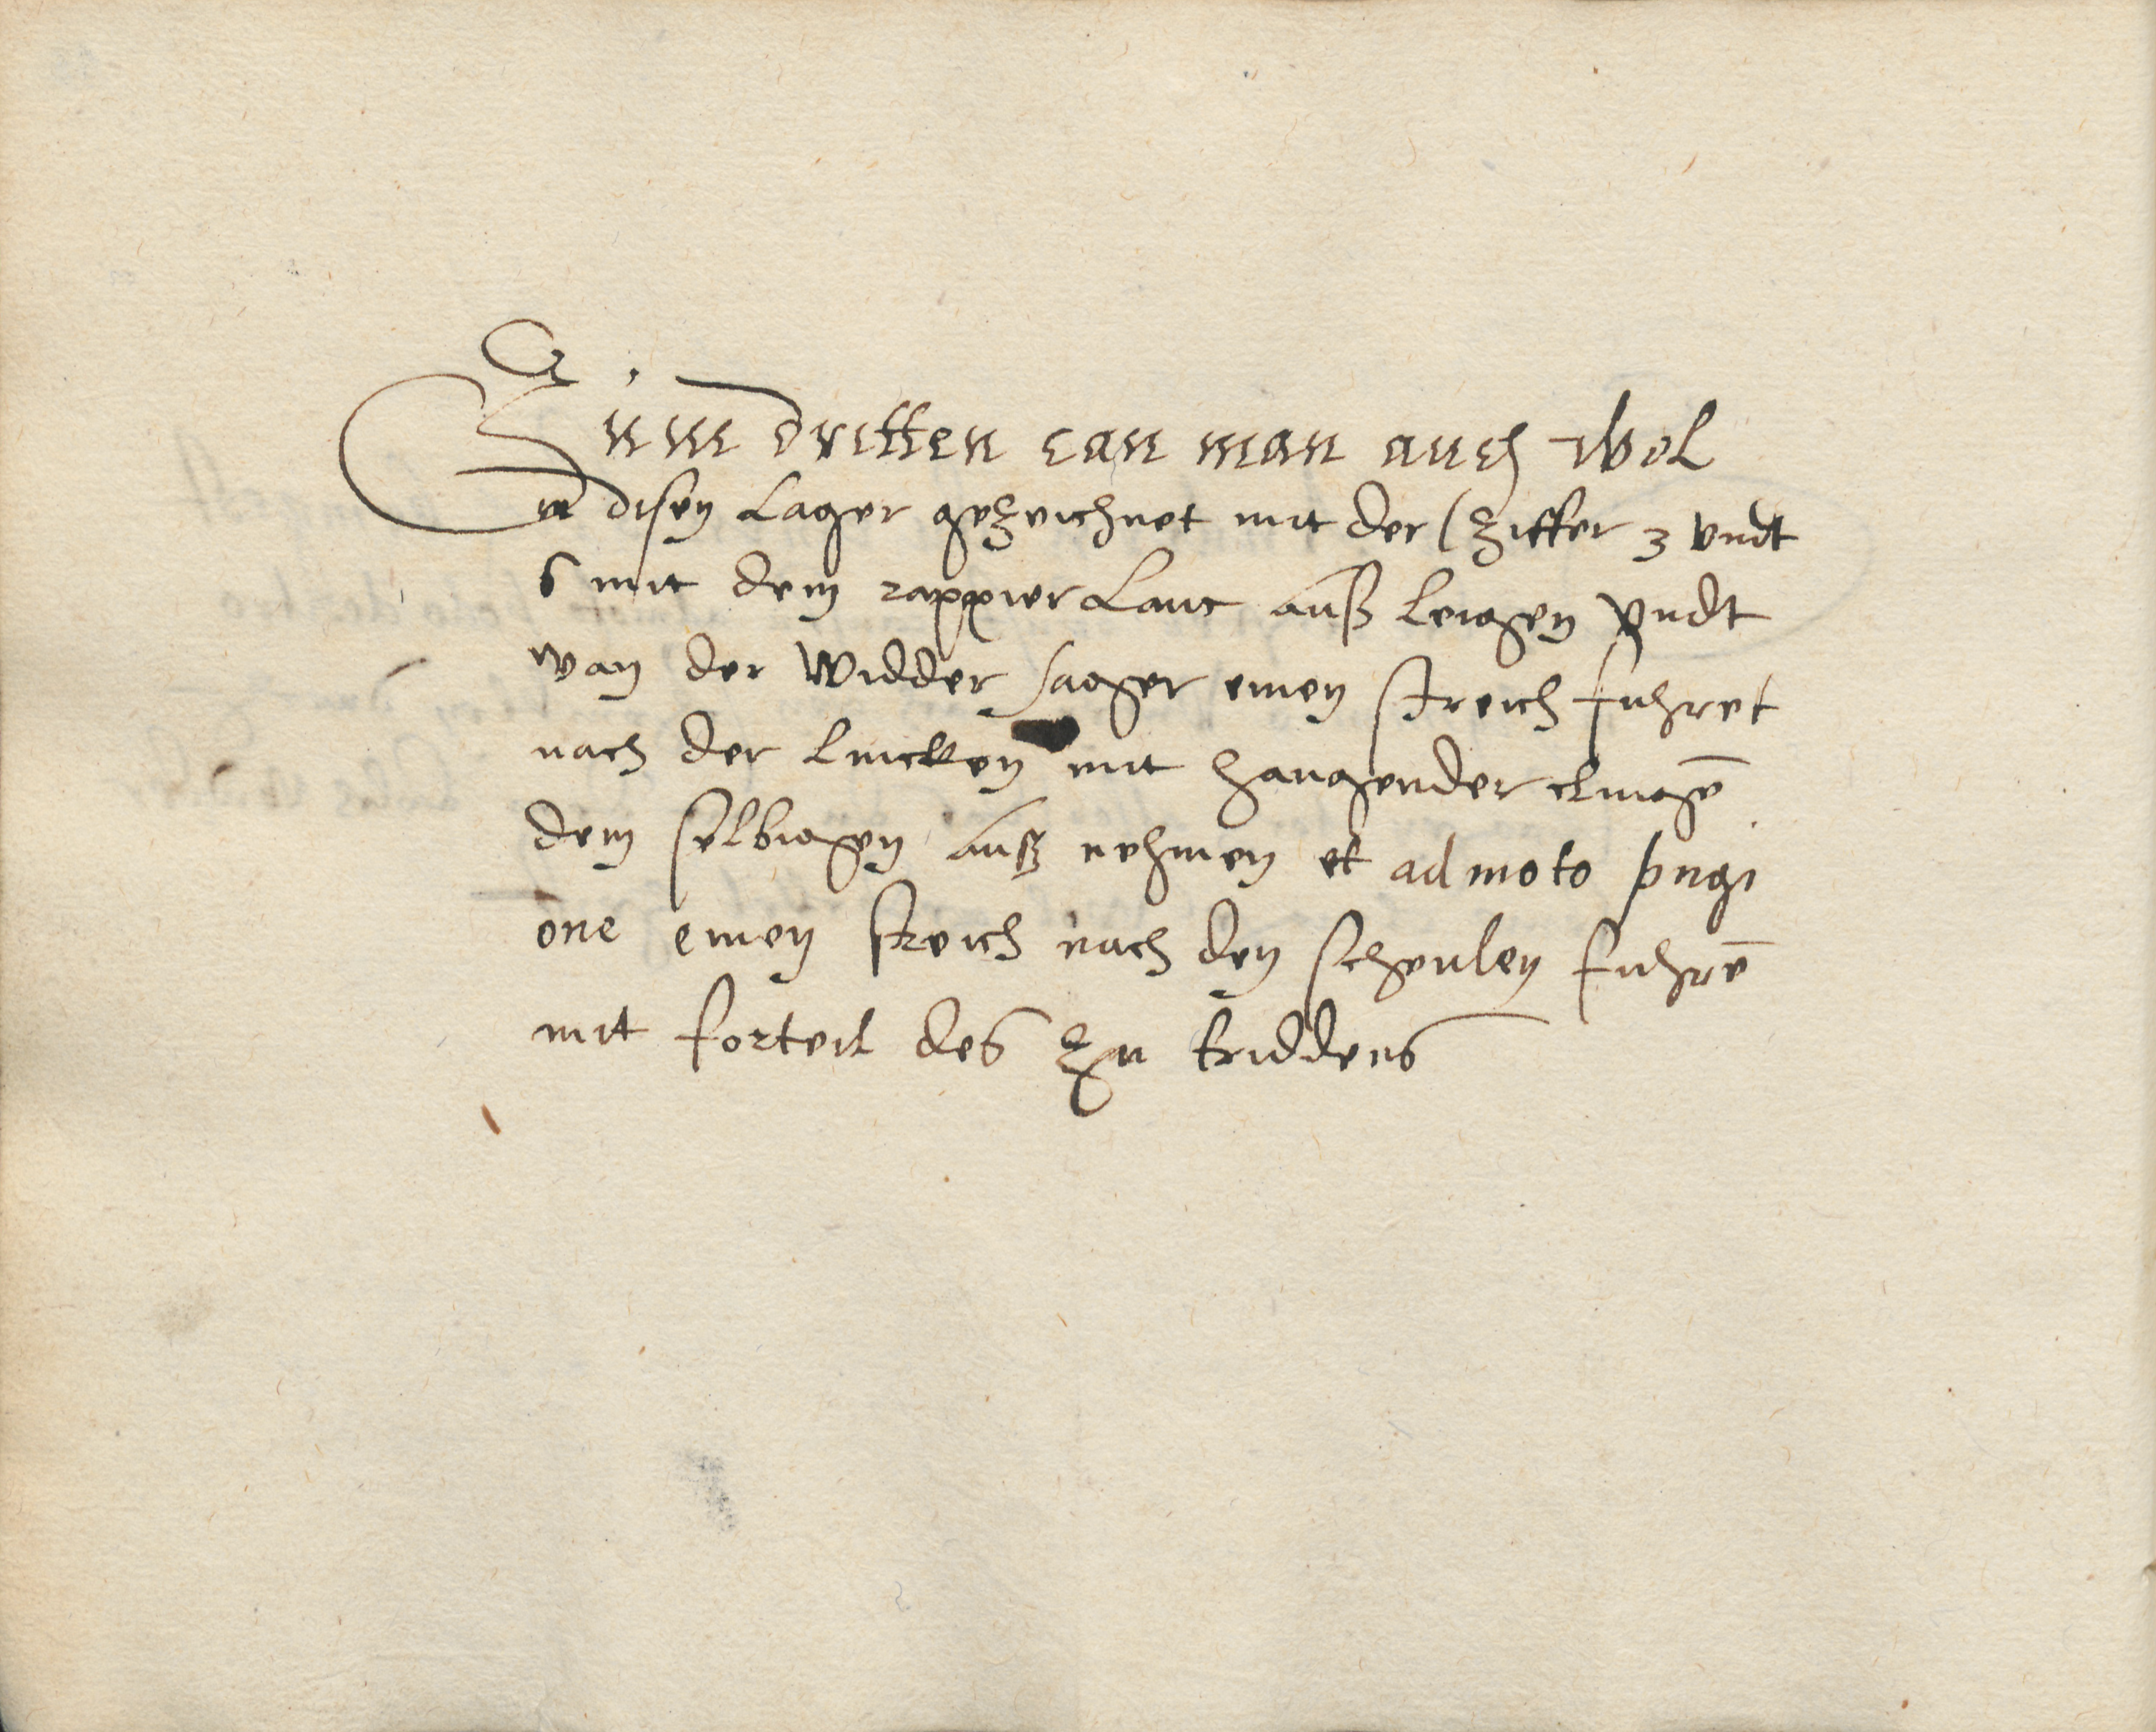 Zum dritten can man auch wol
in disen Lager gezeichnet mit der Ziffer 3 vndt
6 mit dem rappier Lanc auß leigen vndt
wan der widder sager einen streich fuhret
nach der lincken mit hangender clingē
dem selbigen auß nehmen et admoto pugi
one einen streich nach den schenlen fuhrē
mit forteil des zu triddens